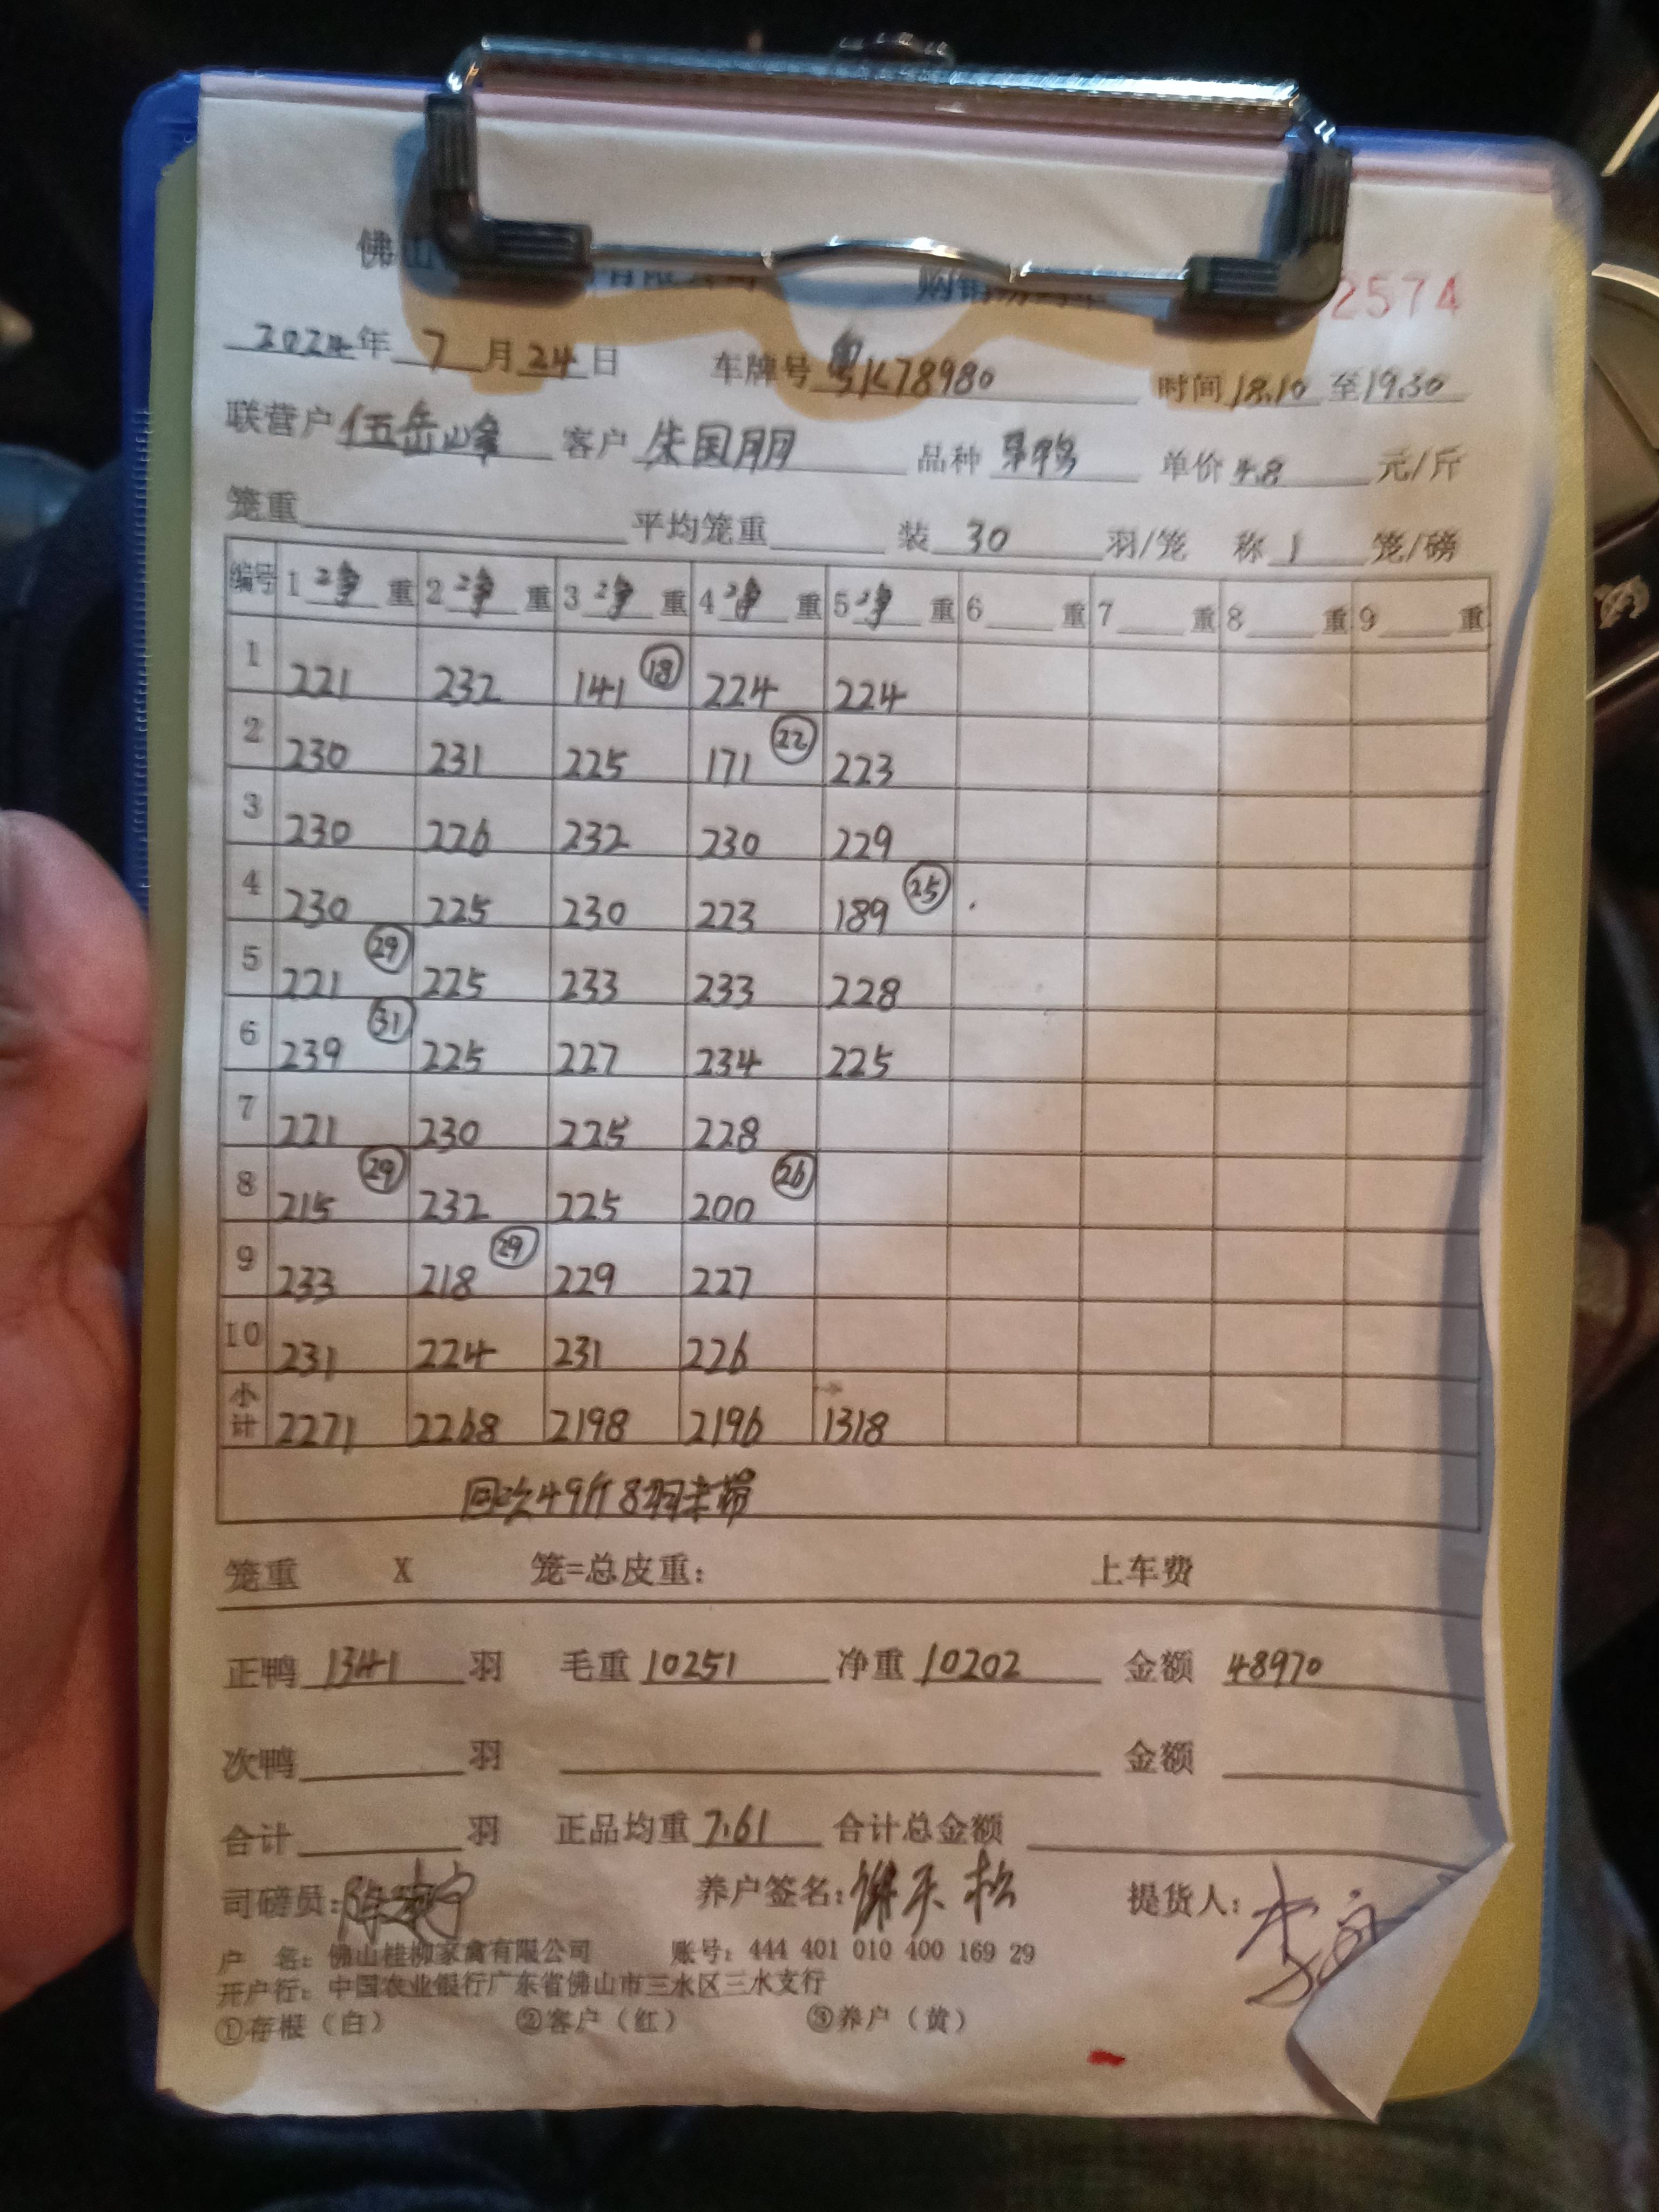 佛山
2574
2024年 7月24日 车牌号 粤K78980 时间18.10至19.30
联营户 伍岳峰 客户 朱国朋 品种 单价4.8 元/斤
笼重 平均笼重 装 30 羽/笼 称 1 笼/磅
编号 1净重 2净重 3净重 4净重 5净重 6 重 7 重 8 重 9 重
1 221 232 141 ⑱ 224 224
2 230 231 225 171 ㉒ 223
3 230 226 232 230 229
4 230 225 230 223 189 ㉕
5 221 ㉙ 225 233 233 228
6 239 ㉛ 225 227 234 225
7 221 230 225 228
8 215 ㉙ 232 225 200 ㉖
9 233 218 ㉙ 229 227
10 231 224 231 226
小计 2271 2268 2198 2196 1318
回次49斤8羽未带
笼重 X 笼=总皮重: 上车费
正鸭 1341 羽 毛重 10251 净重 10202 金额 48970
次鸭 羽 金额
合计 羽 正品均重 7.61 合计总金额
司磅员: 养户签名: 提货人:
户 名: 佛山桂柳家禽有限公司 账号: 444 401 010 400 169 29
开户行: 中国农业银行广东省佛山市三水区三水支行
①存根(白) ②客户(红) ③养户(黄)